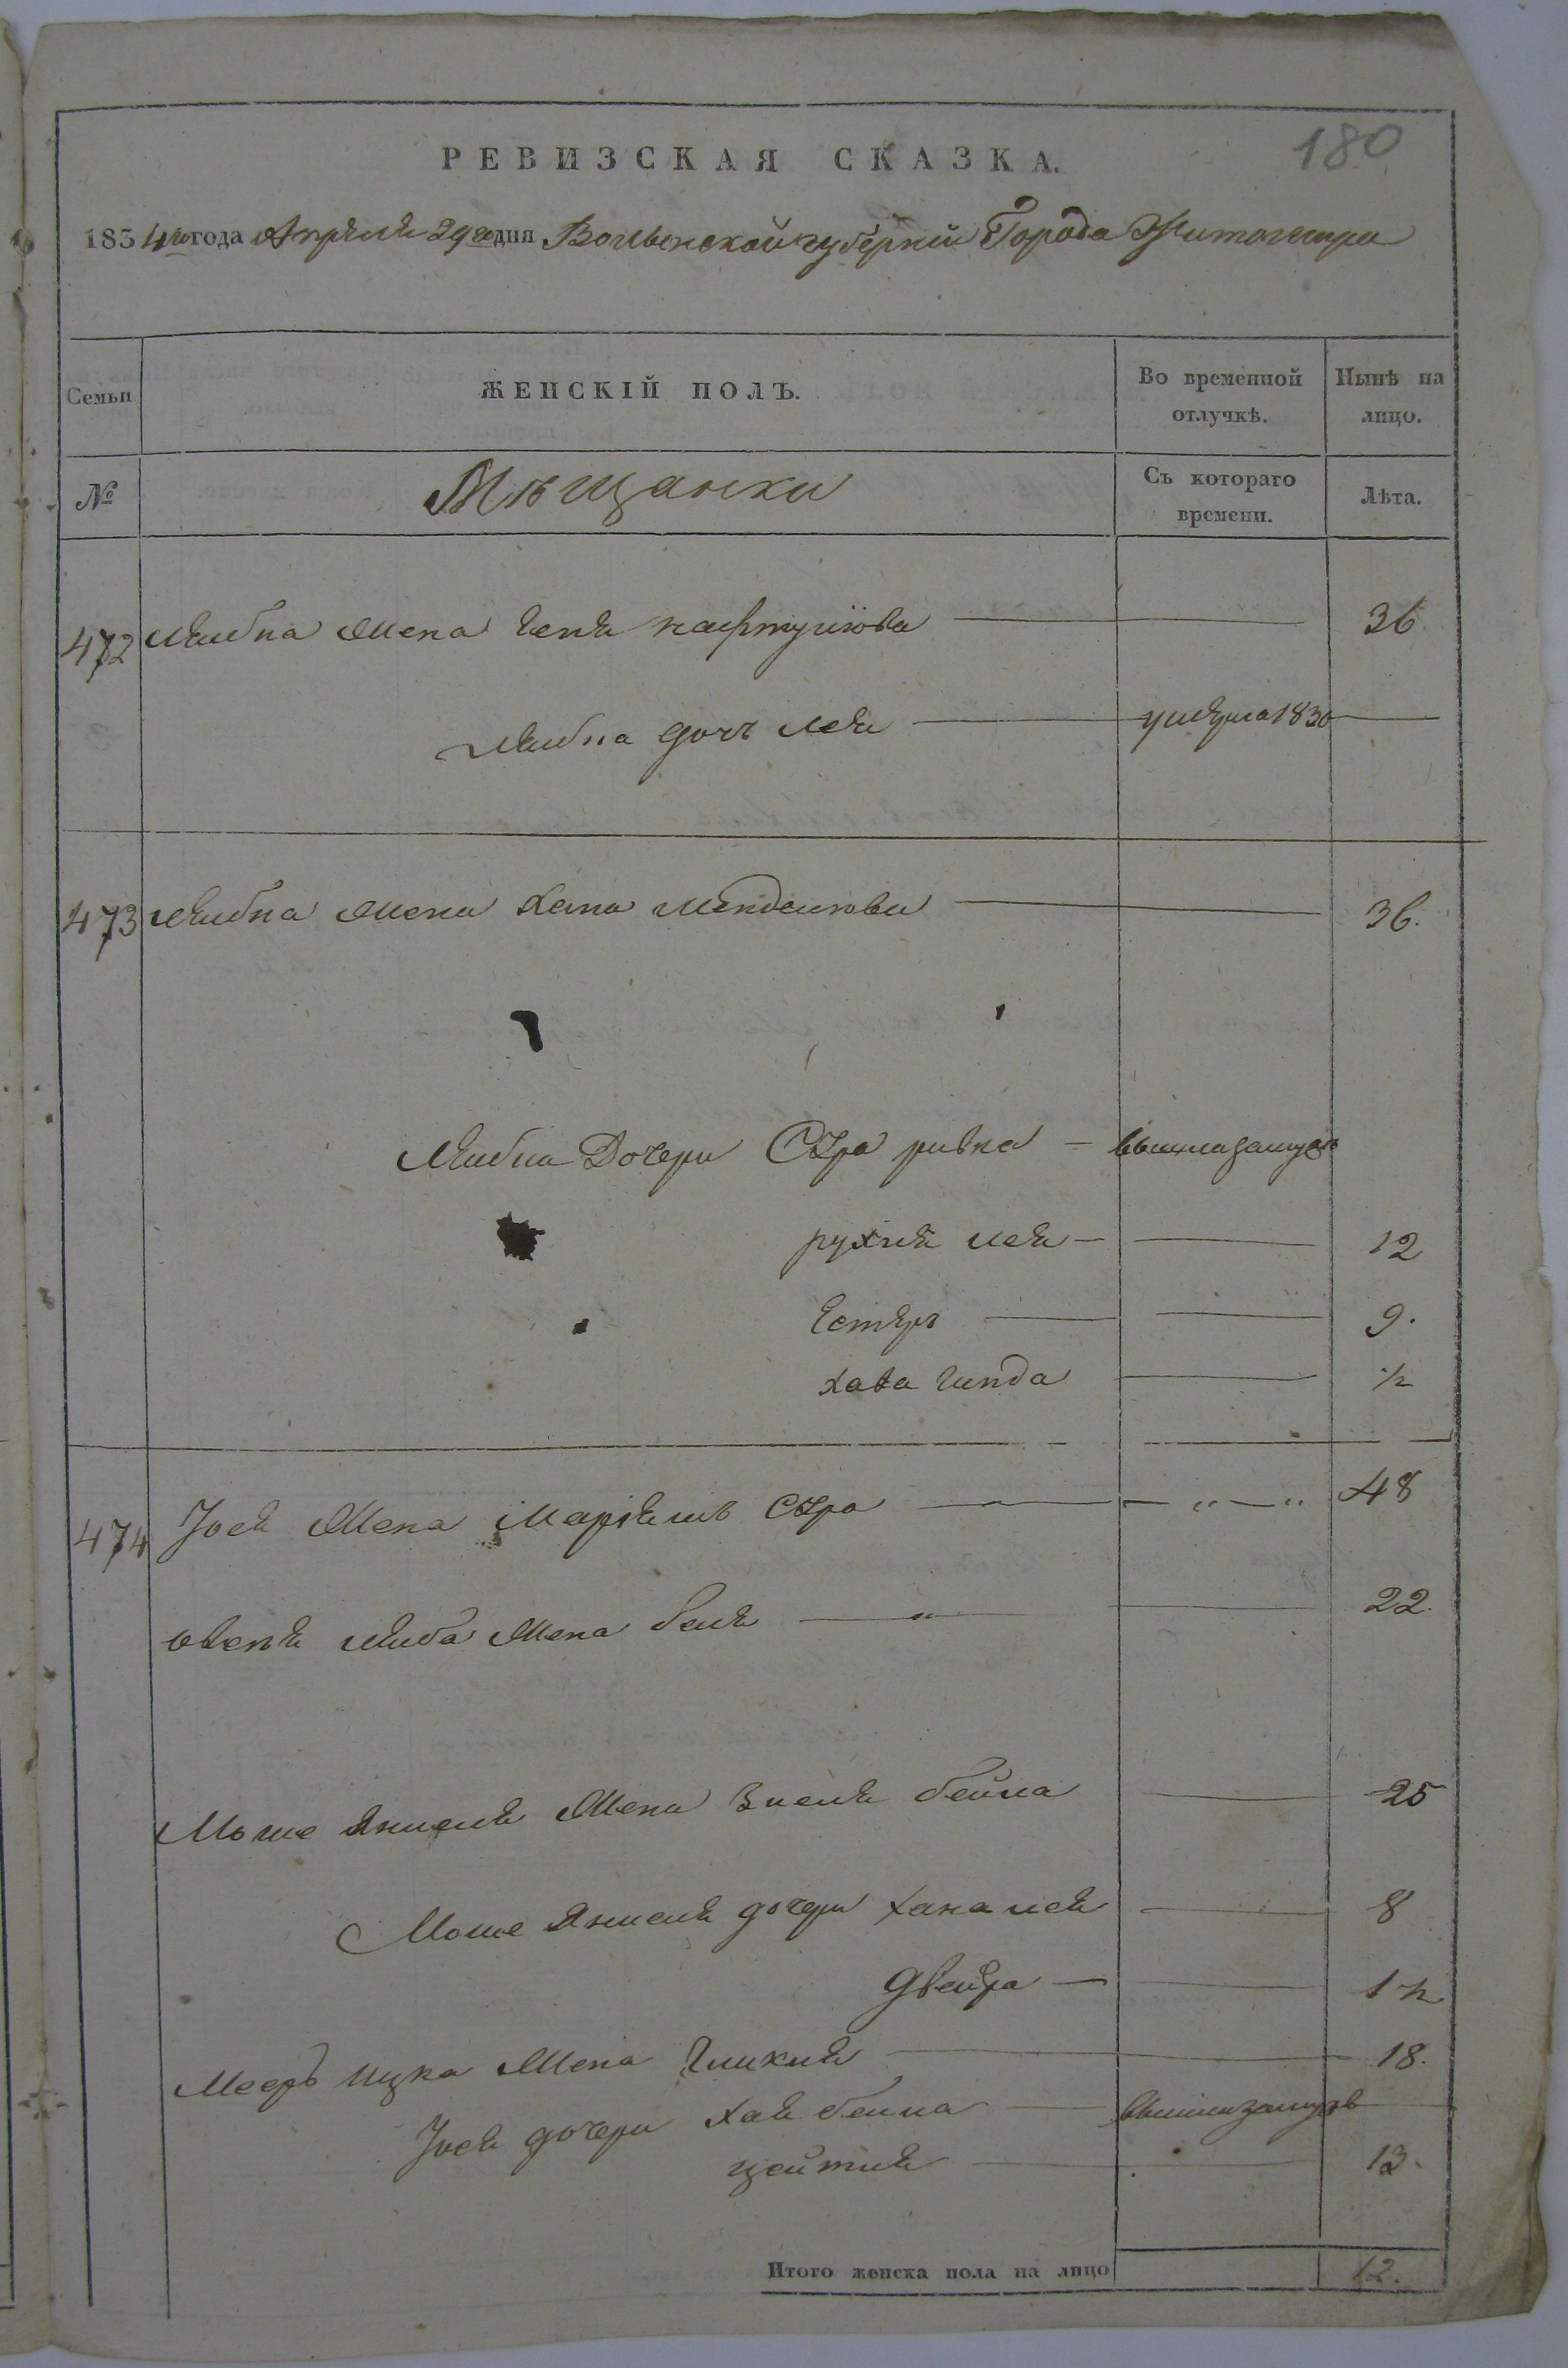 180
РЕВИЗСКАЯ СКАЗКА.
1834го года Апреля 29го дня Волынской губерніи Города Житомира
Семьи ЖЕНСКІЙ ПОЛЪ. Во временной отлучкѣ. Нынѣ на лицо.
№ Мѣщанки Съ котораго времени. Лѣта.
472 Лейбы жена Геня 36
Лейбы дочь Лея умерла 1830
473 Лейбы жена Хана Менделюва 36.
Лейбы Дочери Сура ривка – вышла замужъ
рухля лея – 12
Естеръ 9.
хава Гинда ½
474 Іося жена Маріямъ Сура – „ – „ 48
жена беля „ 22.
Моше жена бейла 25
Моше дочери хана лея 8
двейра – 1 ½
Мееръ Ицка жена Гликля 18.
Іося дочери хая бейла вышли замужъ
цейтля 13.
Итого женска пола на лицо 12.